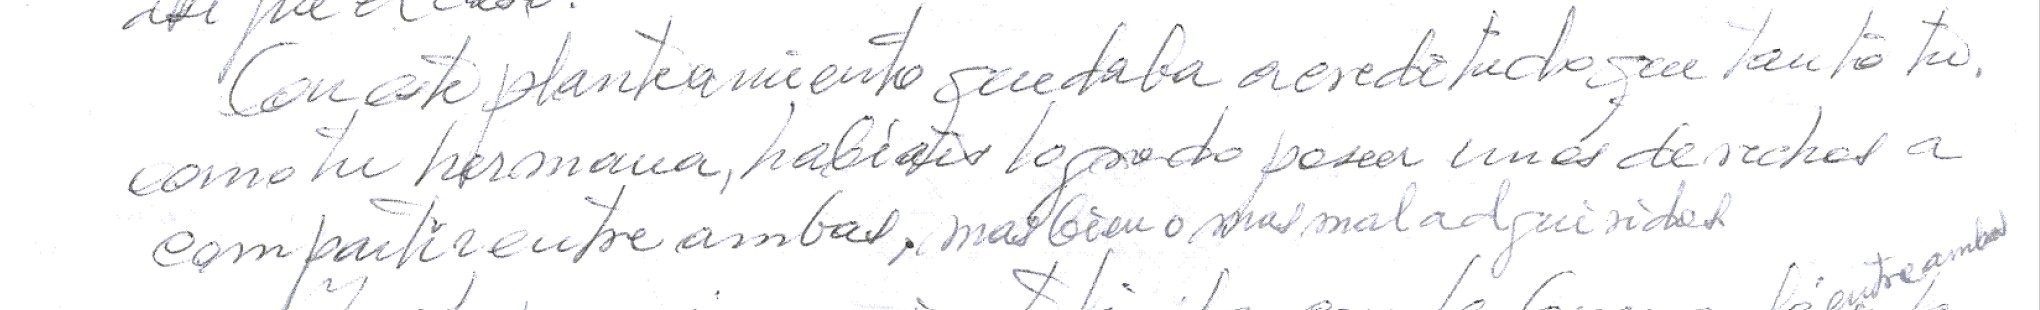 así fue el caso.
Con este planteamiento quedaba acreditado que tanto tu.
como tu hermana, habiais logrado poseer unos derechos a
compartir entre ambas, mas bien o mas mal adquiridos
entre ambas